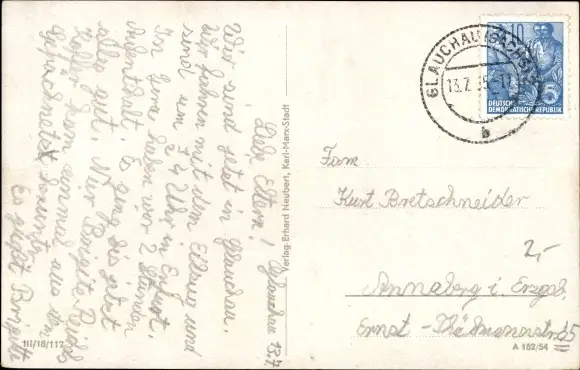 Glauchau 13.7.
Liebe Eltern!
Wir sind jetzt in Glauchau.
Wir fahren mit dem Eilzug und
sind um 7 Uhr in Erfurt.
In Gera haben wir 2 Stunden
Aufenthalt. Es ging bis jetzt
alles gut. Nur Brigitte
Koffer kam einmal aus dem
Gepäcknetz
Es grüßt Brigitte
Verlag Erhard Neubert, Karl-Marx-Stadt
III/18/117
GLAUCHAU (SACHS)
13.7.
b
10
5
DEUTSCHE
DEMOKRATISCHE REPUBLIK
Fam.
Kurt Bretschneider
2,-
Annaberg i. Erzgeb.
Ernst-Thälmannstr. 65
A 162/54